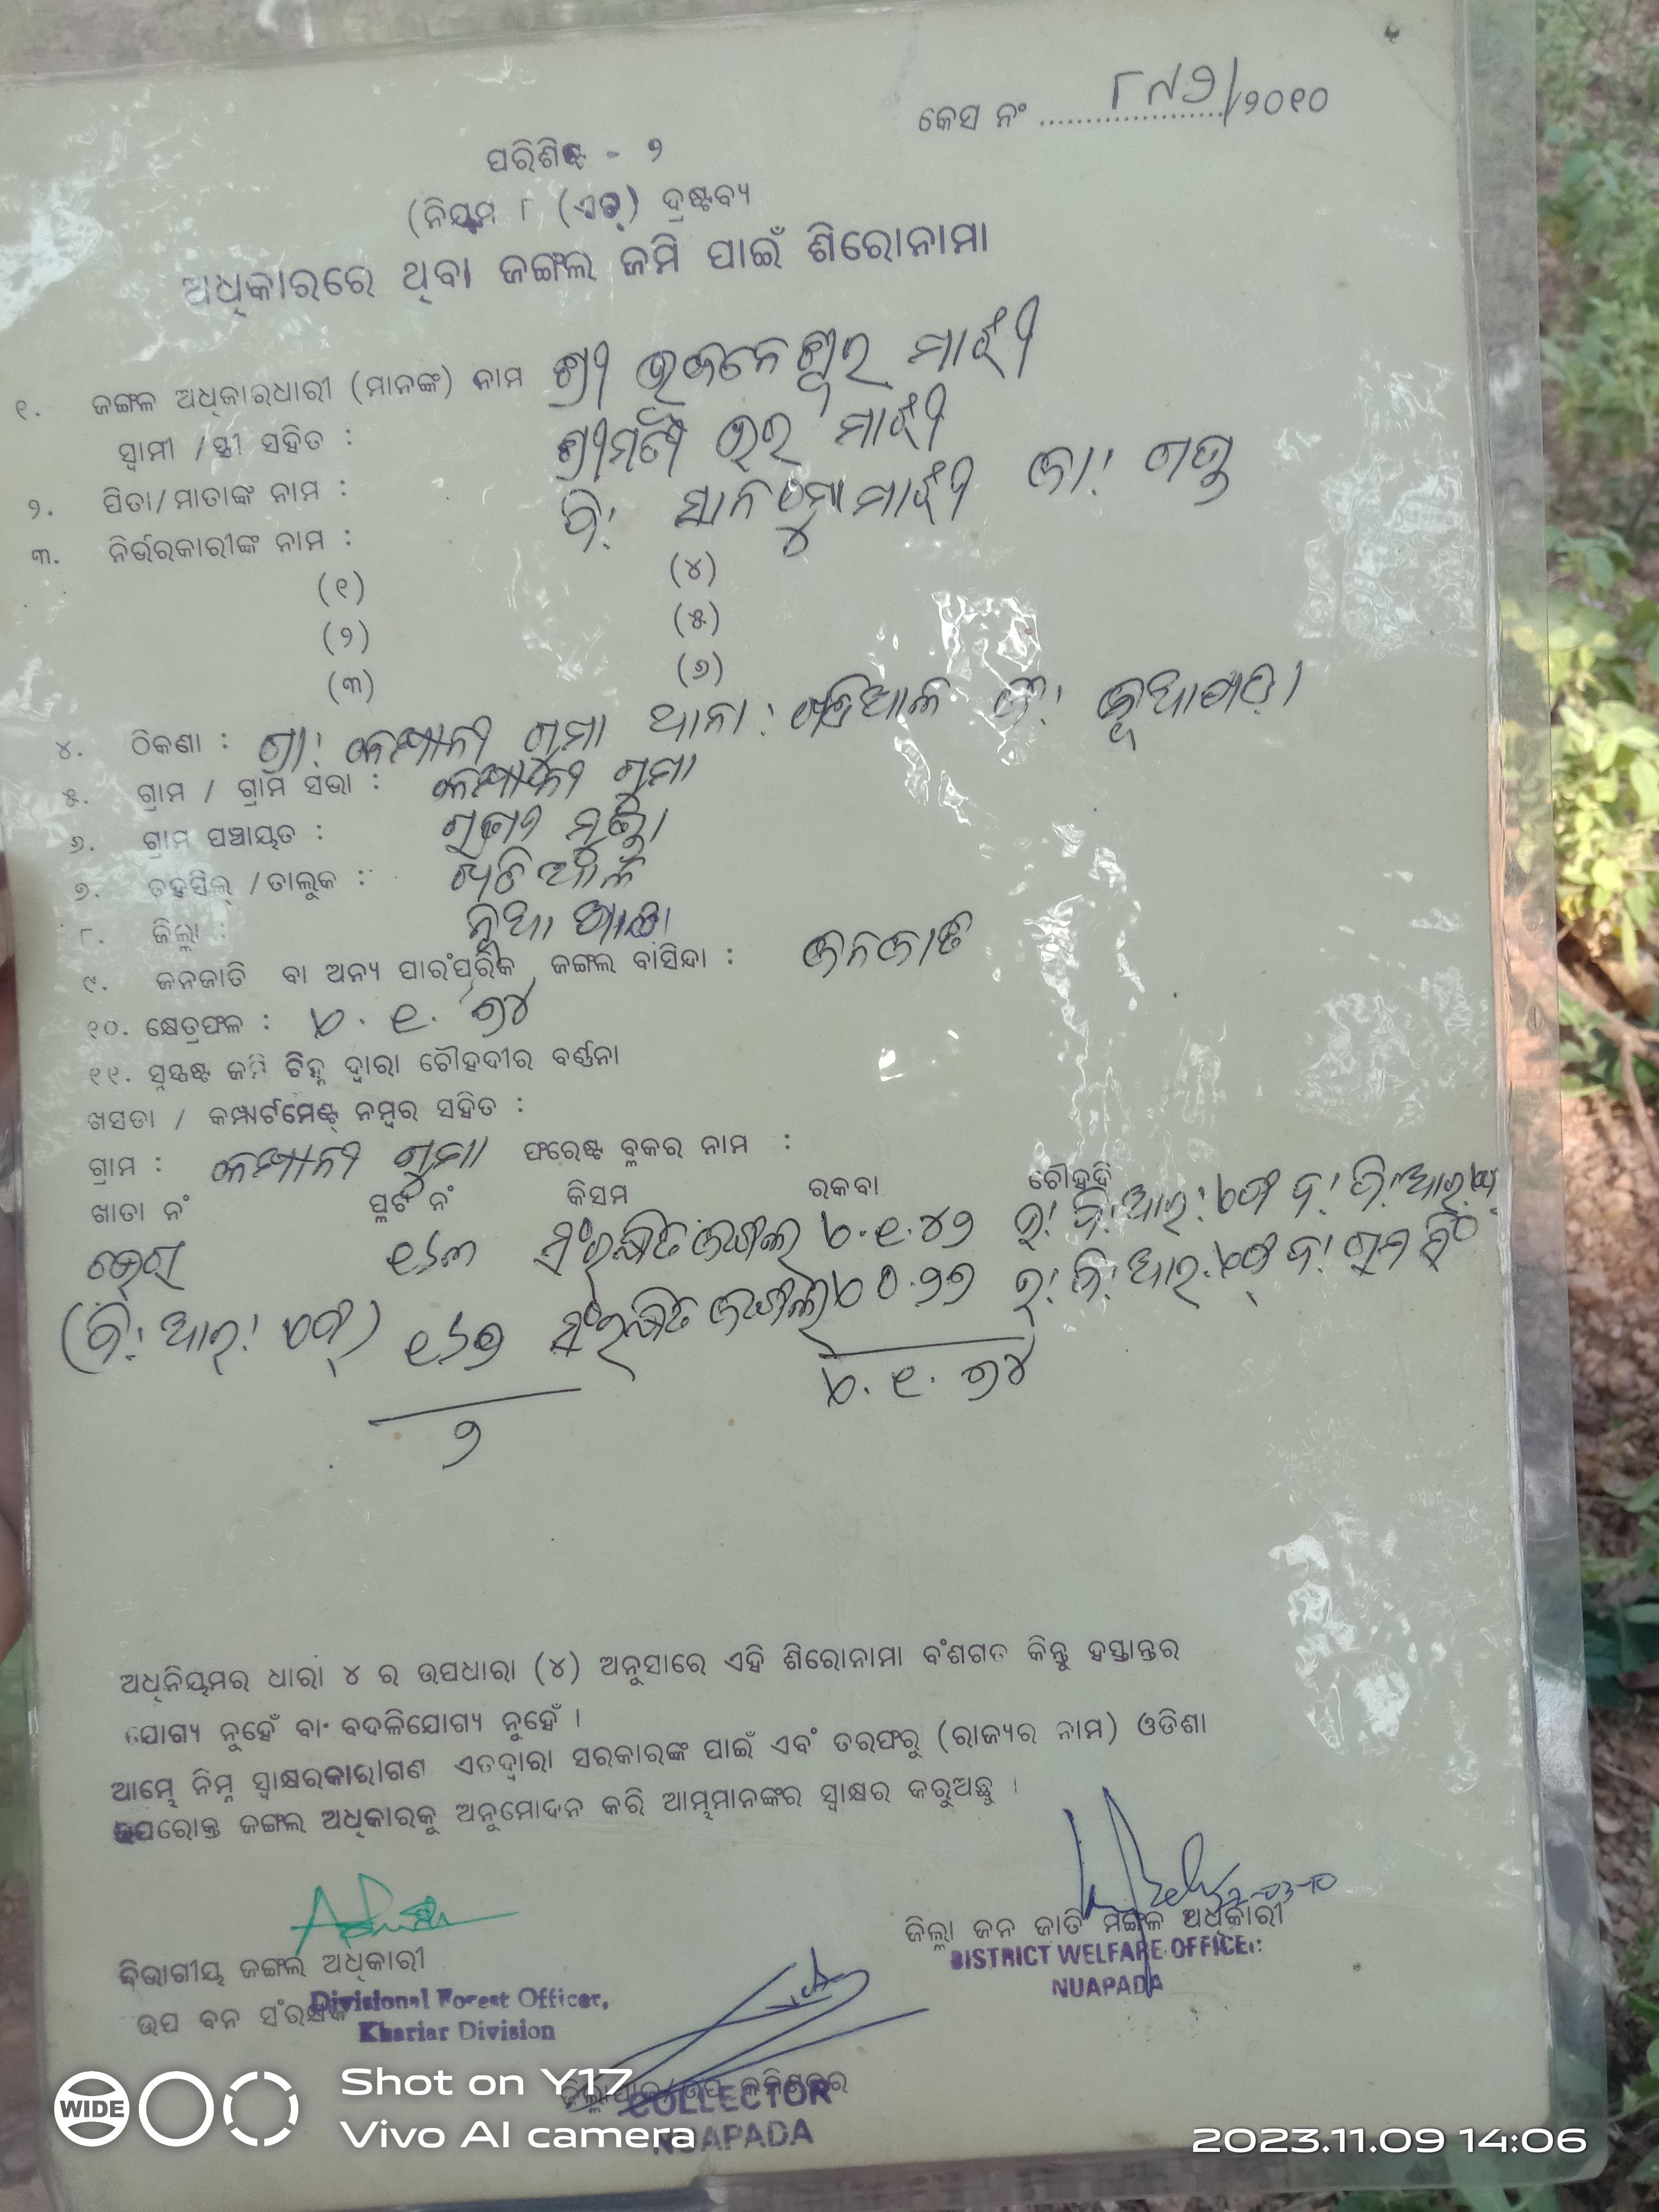 କେସ ନଂ ..................... ୮୯୨/୨୦୧୦
ପରିଶିଷ୍ଟ - ୨
(ନିୟମ ୮ (ଏଚ୍) ଦ୍ରଷ୍ଟବ୍ୟ
ଅଧିକାରରେ ଥିବା ଜଙ୍ଗଲ ଜମି ପାଇଁ ଶିରୋନାମା
୧. ଜଙ୍ଗଳ ଅଧିକାରଧାରୀ (ମାନଙ୍କ) ନାମ ଶ୍ରୀ ମାଝୀ
ସ୍ଵାମୀ / ସ୍ତ୍ରୀ ସହିତ : ଶ୍ରୀମତୀ ମାଝୀ
୨. ପିତା/ମାତାଙ୍କ ନାମ : ପି: ମାଝୀ ଜା: ଗଣ୍ଡ
୩. ନିର୍ଭରକାରୀଙ୍କ ନାମ :
(୧) (୪)
(୨) (୫)
(୩) (୬)
୪. ଠିକଣା : ଗ୍ରା: ଗୁମା ଥାନା: ଖଡିଆଳ ଜି: ନୂଆପଡ଼ା
୫. ଗ୍ରାମ / ଗ୍ରାମ ସଭା : ଗୁମା
୬. ଗ୍ରାମ ପଞ୍ଚାୟତ :
୭. ତହସିଲ୍ /ତାଲୁକ : ଖଡିଆଳ
୮. ଜିଲ୍ଲା : ନୂଆପଡ଼ା
୯. ଜନଜାତି ବା ଅନ୍ୟ ପାରଂପରିକ ଜଙ୍ଗଲ ବାସିନ୍ଦା : ଜନଜାତି
୧୦. କ୍ଷେତ୍ରଫଳ : ଏ. ୧. ୭୪
୧୧. ସୁସ୍ପଷ୍ଟ ଜମି ଚିହ୍ନ ଦ୍ୱାରା ଚୌହଦୀର ବର୍ଣ୍ଣନା
ଖସଡା / କମ୍ପାର୍ଟମେଣ୍ଟ୍ ନମ୍ବର ସହିତ :
ଗ୍ରାମ : ଗୁମା ଫରେଷ୍ଟ ବ୍ଳକର ନାମ :
ଖାତା ନଂ ପ୍ଳଟ ନଂ କିସମ ରକବା ଚୌହଦି
୧୬୩ ସଂରକ୍ଷିତ ଜଙ୍ଗଲ ଏ.୧.୪୭
(ଡି: ଆର: ଏଫ୍) ୧୬୭ ସଂରକ୍ଷିତ ଜଙ୍ଗଲ ଏ ୦.୨୭
୨ ଏ. ୧. ୭୪
ଅଧିନିୟମର ଧାରା ୪ ର ଉପଧାରା (୪) ଅନୁସାରେ ଏହି ଶିରୋନାମା ବଂଶଗତ କିନ୍ତୁ ହସ୍ତାନ୍ତର
ଯୋଗ୍ୟ ନୁହେଁ ବା ବଦଳିଯୋଗ୍ୟ ନୁହେଁ ।
ଆମ୍ଭେ ନିମ୍ନ ସ୍ୱାକ୍ଷରକାରୀଗଣ ଏତଦ୍ୱାରା ସରକାରଙ୍କ ପାଇଁ ଏବଂ ତରଫରୁ (ରାଜ୍ୟର ନାମ) ଓଡିଶା
ଉପରୋକ୍ତ ଜଙ୍ଗଲ ଅଧିକାରକୁ ଅନୁମୋଦନ କରି ଆମ୍ଭମାନଙ୍କର ସ୍ୱାକ୍ଷର କରୁଅଛୁ ।
ଜିଲ୍ଲା ଜନ ଜାତି ମଙ୍ଗଳ ଅଧିକାରୀ
DISTRICT WELFARE OFFICER
NUAPADA
ବିଭାଗୀୟ ଜଙ୍ଗଲ ଅଧିକାରୀ
ଉପ ବନ ସଂରକ୍ଷକ
Divisional Forest Officer,
Khariar Division
ଜିଲ୍ଲାପାଳ/ଉପ କମିଶନର
COLLECTOR
NUAPADA
WIDE
Shot on Y17
Vivo AI camera
2023.11.09 14:06